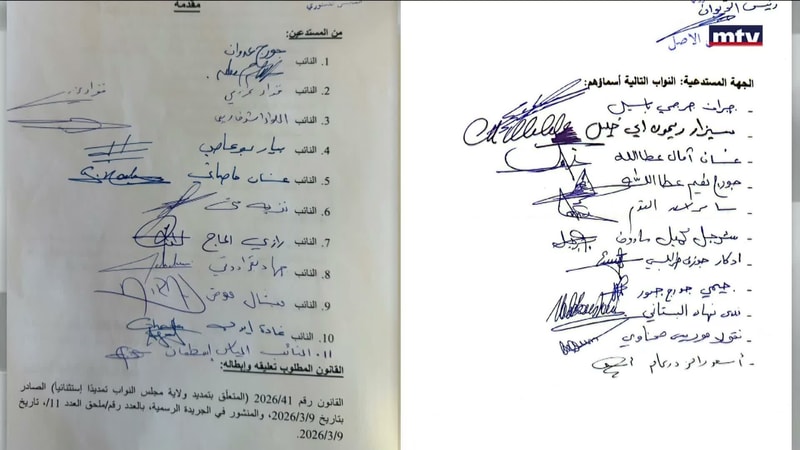 مقدمة
من المستدعين:
1. النائب جورج عدوان
2. النائب
3. النائب اللواء اشرف ريفي
4. النائب بيار بو عاصي
5. النائب غسان حاصباني
6. النائب نزيه متى
7. النائب رازي الحاج
8. النائب جهاد
9. النائب ميشال معوض
10. النائب غادة ايوب
11. النائب الياس اسطفان
القانون المطلوب تعليقه وإبطاله:
القانون رقم 2026/41 (المتعلق بتمديد ولاية مجلس النواب تمديدًا إستثنائيا) الصادر
بتاريخ 2026/3/9، والمنشور في الجريدة الرسمية، بالعدد رقم/ملحق العدد 11/، تاريخ
2026/3/9.
رئيس الديوان
الاصل
mtv
الجهة المستدعية: النواب التالية أسماؤهم:
- جبران جرجي باسيل
- سيزار ريمون ابي خليل
- غسان أمال عطاالله
- جورج نعيم عطاالله
- سامر
- شربل كميل مارون
- ادكار جوزف طرابلسي
- جيمي جورج جبور
- ندى نهاد البستاني
- نقولا موريس صحناوي
- أسعد رامز درغام